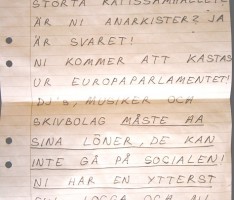 STÖRTA RÄTTSSAMHÄLLET!
ÄR NI ANARKISTER? JA
ÄR SVARET!
NI KOMMER ATT KASTAS
UR EUROPAPARLAMENTET!
DJ's, MUSIKER OCH
SKIVBOLAG MÅSTE HA
SINA LÖNER, DE KAN
INTE GÅ PÅ SOCIALEN!
NI HAR EN YTTERST
OCH